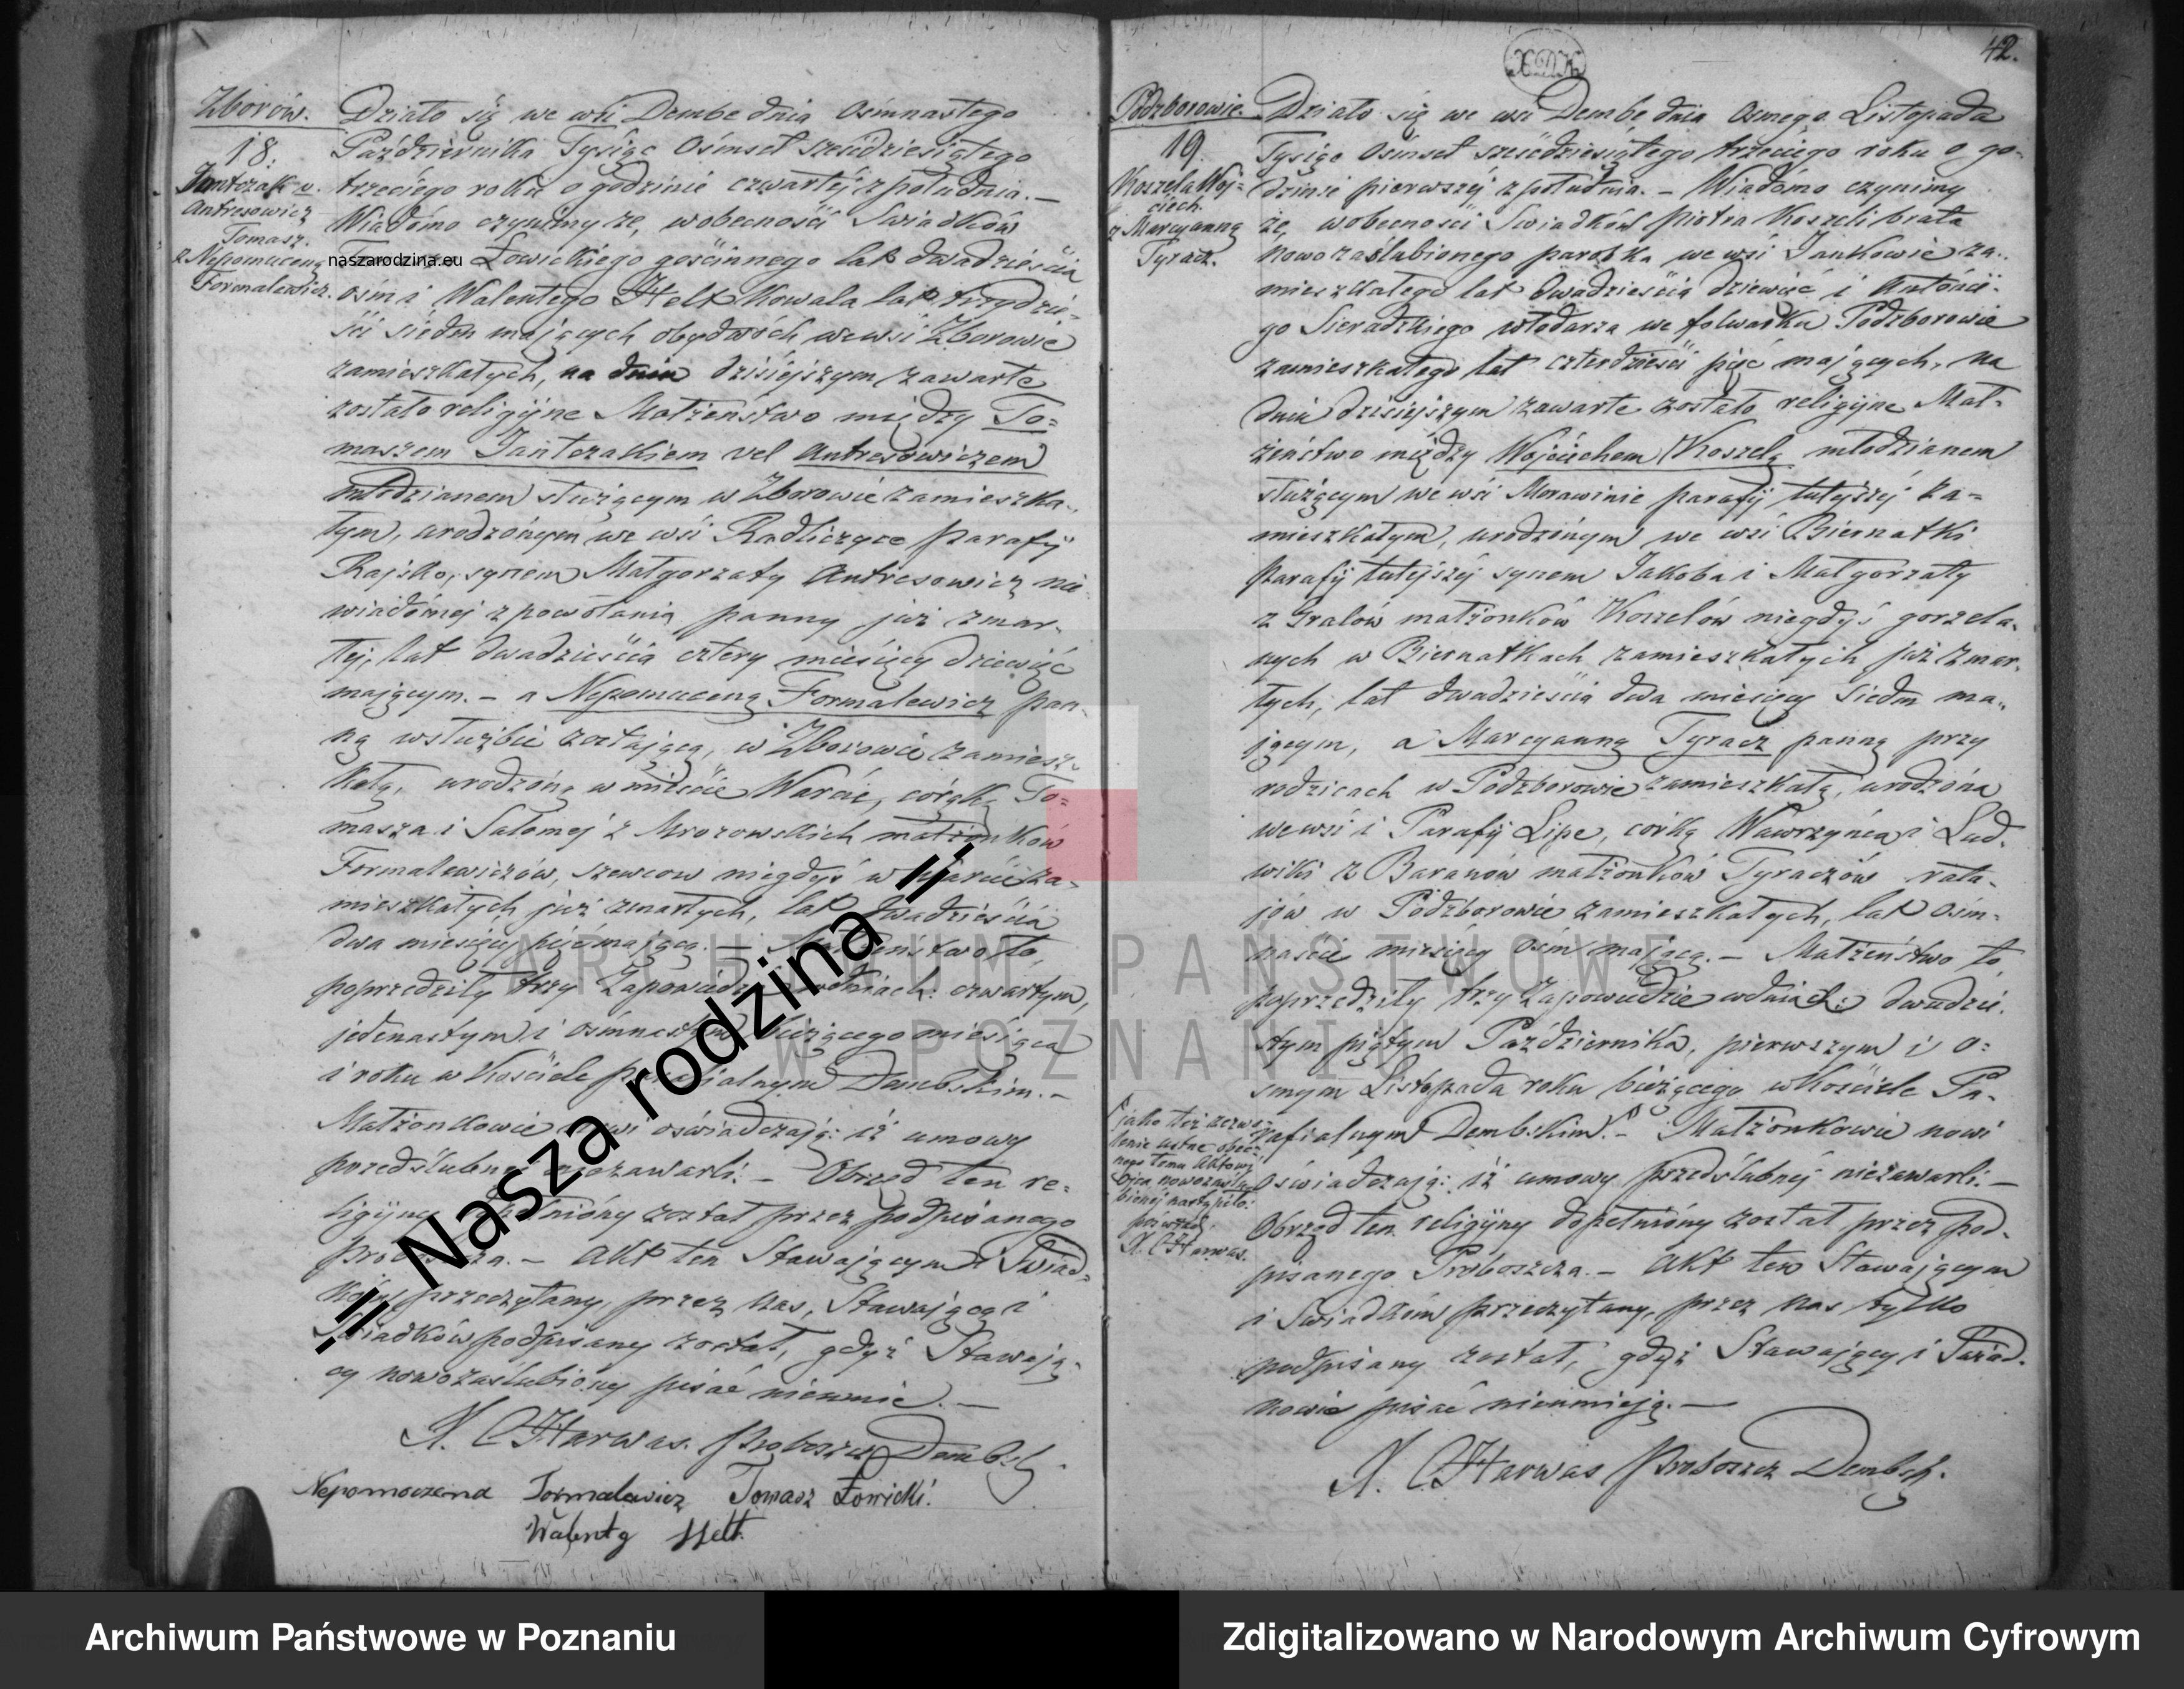 Zborów.
18.
Jantczak v.
Antresowicz
Tomasz.
z Nepomuceną
Formalewicz.
Działo się we wsi Dembe dnia Osimnastego
Października Tysiąc Ośmset sześćdziesiątego
trzeciego roku o godzinie czwartéj z południa. —
Wiadomo czynimy że, wobecności Swiadków
naszarodzina.eu Łowickiego gościnnego lat dwadzieścia
ośm i Walentego Helt Kowala lat trzydzie-
ści siedm mających obydwóch we wsi Zborowie
zamieszkałych, na dniu dzisiejszym zawarte
zostało religijne Małżeństwo między To=
maszem Jantczakiem vel Antresowiczem
młodzianem służącym w Zborowie zamieszka-
łym, urodzonym we wsi Radliczyce Parafij
Rajsko, synem Małgorzaty Antresowicz nie
wiadomej z powołania panny już zmar-
łej, lat dwadzieścia cztery miesięcy dziewięć
mającym. — a Nepomuceną Formalewicz pan-
ną w służbie zostającą, w Zborowie zamiesz-
kałą, urodzoną w mieście Warcie, córąką To=
masza i Salomej z Mrozowskich małżonków
Formalewiczów, szewców niegdyś w Warcie za-
mieszkałych już zmarłych, lat dwadzieścia
dwa miesięcy pięć mającą. — Małżeństwo to,
poprzedziły trzy Zapowiedzie w dniach: czwartym,
jedenastym i osimnastym bieżącego miesiąca
i roku w Kościele parafialnym Dembskim. —
Małżonkowie nowi oświadczają: iż umowy
przedślubnej nie zawarli. — Obrzęd ten re=
ligijny dopełniony został przez podpisanego
Proboszcza. — Akt ten Stawającym i Swiad=
kom przeczytany, przez nas, Stawającą i
Swiadków podpisany został, gdyż Stawają-
cy nowozaślubiony pisać nieumie. —
X. C Harwas. Proboszcz Dembs.
Nepomocena Formalewicz Tomasz Łowicki.
Walenty Helt
42.
Podzborowie.
19.
Koszela Woj=
ciech.
z Marcyanną
Tyracz.
Działo się we wsi Dembe dnia Osmego Listopada
Tysiąc Ośmset sześćdziesiątego trzeciego roku o go-
dzinie pierwszéj z południa. — Wiadomo czynimy
że, wobecności Swiadków Piotra Koszeli brata
nowozaślubionego parobka we wsi Jankowie za-
mieszkałego lat dwadzieścia dziewięć i Antonie-
go Sieradzkiego włodarza we folwarku Podzborowie
zamieszkałego lat czterdzieści pięć mających, na
dniu dzisiejszym zawarte zostało religijne Mał-
żeństwo między Wojciechem Koszelą młodzianem
służącym we wsi Morawinie parafij tutejszéj za=
mieszkałym, urodzonym we wsi Biernatki
Parafij tutejszéj synem Jakoba i Małgorzaty
z Gralów małżonków Koszelów niegdyś gorzela-
nych w Biernatkach zamieszkałych już zmar-
łych, lat dwadzieścia dwa miesięcy siedm ma-
jącym, a Marcyanną Tyracz panną przy
rodzicach w Podzborowie zamieszkałą, urodzona
we wsi i Parafij Lipe, córką Wawrzyńca i Lud-
wiki z Baranów małżonków Tyraczów rata-
jów w Podzborowie zamieszkałych, lat osim-
naście miesięcy ośm mającą. — Małżeństwo to
poprzedziły trzy Zapowiedzie w dniach: dwudzie-
stym piątym Października, pierwszym i o=
smym Listopada roku bieżącego w Kościele Pa-
rafialnym Dembskim. — Małżonkowie nowi
oświadczają: iż umowy przedślubnéj niezawarli. —
Obrzęd ten religijny dopełniony został przez pod-
pisanego Proboszcza. — Akt ten Stawającym
i Swiadkom przeczytany, przez nas tylko
podpisany został, gdyż Stawający i Swiad-
kowie pisać nieumieją. —
jako też zezwo-
lenie ustne obec-
nego temu Aktowi
Ojca nowozaślu-
bionéj nastąpiło.
X. C Harwas.
X. C Harwas Proboszcz Dembsk.
!! Nasza rodzina !!
ARCHIWUM PAŃSTWOWE
W POZNANIU
Archiwum Państwowe w Poznaniu
Zdigitalizowano w Narodowym Archiwum Cyfrowym